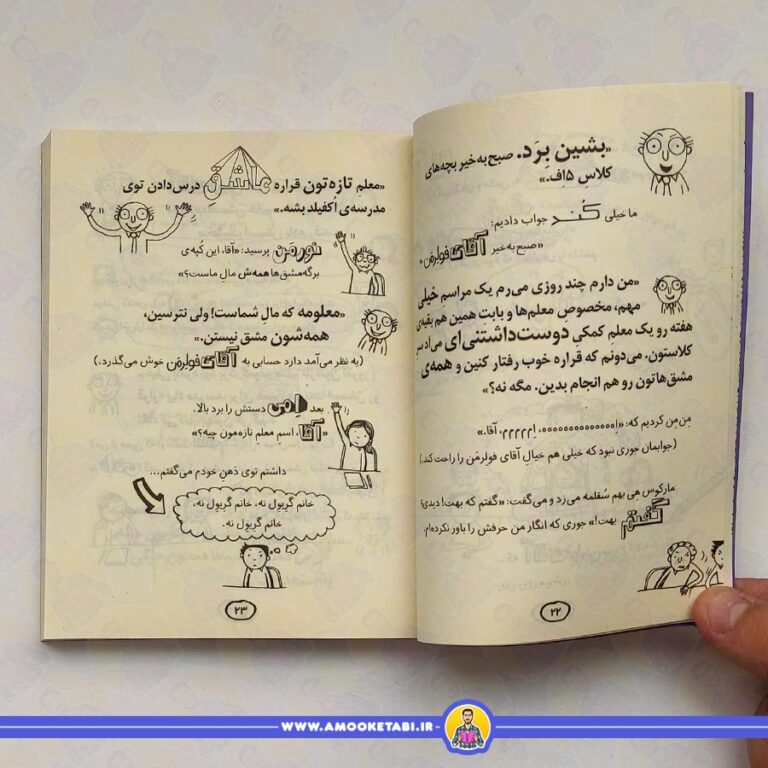 «بشین بِرَد. صبح به خیر بچه‌های
کلاس ۵اِف.»
ما خیلی کُند جواب دادیم:
«صبح به خیر آقای فولرمَن.»
«من دارم چند روزی می‌رم یک مراسم خیلی
مهم، مخصوص معلم‌ها و بابت همین هم بقیه‌ی
هفته رو یک معلم کمکیِ دوست‌داشتنی‌ای می‌آد سر
کلاستون. می‌دونم که قراره خوب رفتار کنین و همه‌ی
مشق‌هاتون رو هم انجام بدین. مگه نه؟»
مِن‌مِن کردیم که:
آقا.»
(جوابمان جوری نبود که خیلی هم خیال آقای فولرمَن را راحت کند.)
مارکوس هِی بهم سُقلمه می‌زد و می‌گفت: «گفتم که بهت! دیدی؟
گفتم بهت!» جوری که انگار من حرفش را باور نکرده‌ام.
۲۲
«معلمِ تازه‌تون قراره عاشق درس‌دادن توی
مدرسه‌ی اُکفیلد بشه.»
نورمَن پرسید: «آقا، این کُپه‌ی
برگه‌مشق‌ها همه‌ش مال ماست؟»
«معلومه که مال شماست! ولی نترسین،
همه‌شون مشق نیستن.»
(به نظر می‌آمد دارد حسابی به آقای فولرمَن خوش می‌گذرد.)
بعد اِمی دستش را برد بالا.
«آقا، اسمِ معلمِ تازه‌مون چیه؟»
داشتم توی ذهنِ خودم می‌گفتم...
خانم گریول نه، خانم گریول نه،
خانم گریول نه.
۲۳
WWW.AMOOKETABI.IR